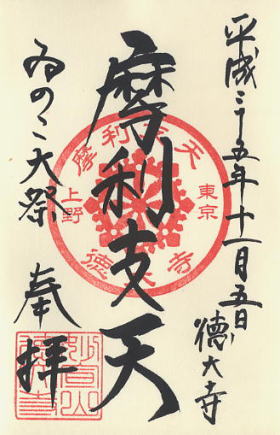 平成二十五年十一月五日
徳大寺
摩利支天
ゐのこ大祭
奉拝
摩利支天
東京
上野
徳大寺